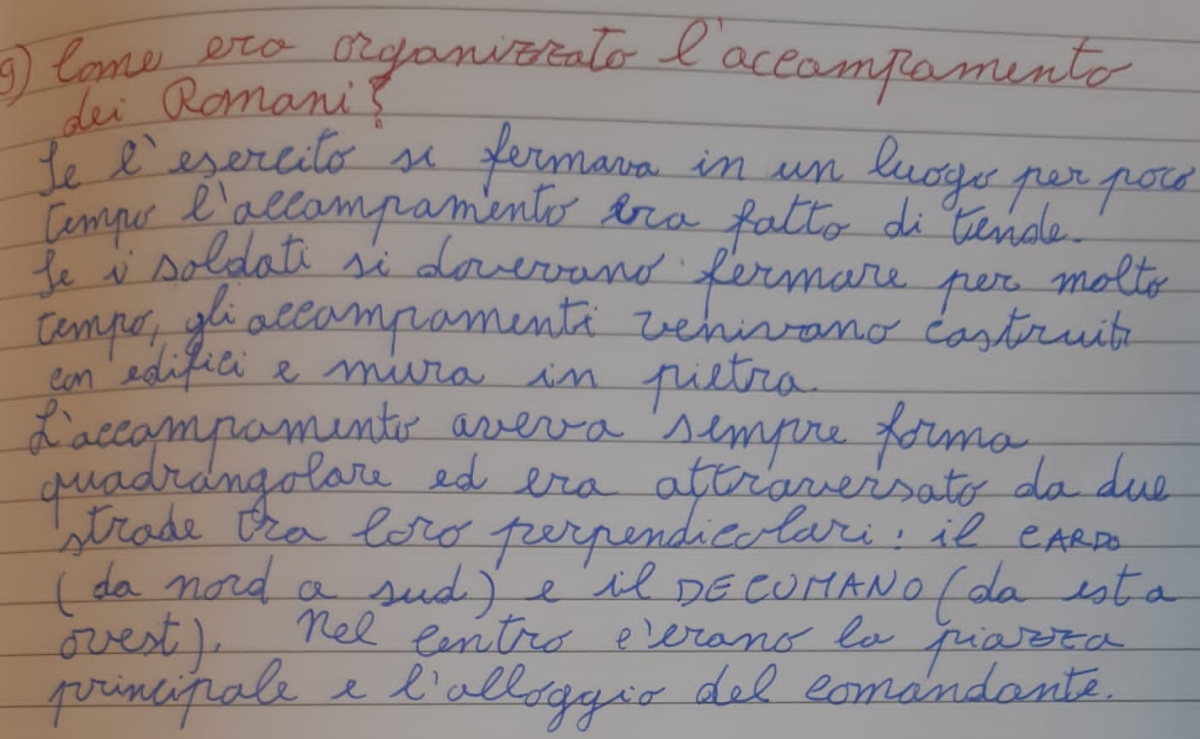 9) Come era organizzato l'accampamento
dei Romani?
Se l'esercito si fermava in un luogo per poco
tempo l'accampamento era fatto di tende.
Se i soldati si dovevano fermare per molto
tempo, gli accampamenti venivano costruiti
con edifici e mura in pietra.
L'accampamento aveva sempre forma
quadrangolare ed era attraversato da due
strade tra loro perpendicolari: il CARDO
(da nord a sud) e il DECUMANO (da est a
ovest). Nel centro c'erano la piazza
principale e l'alloggio del comandante.